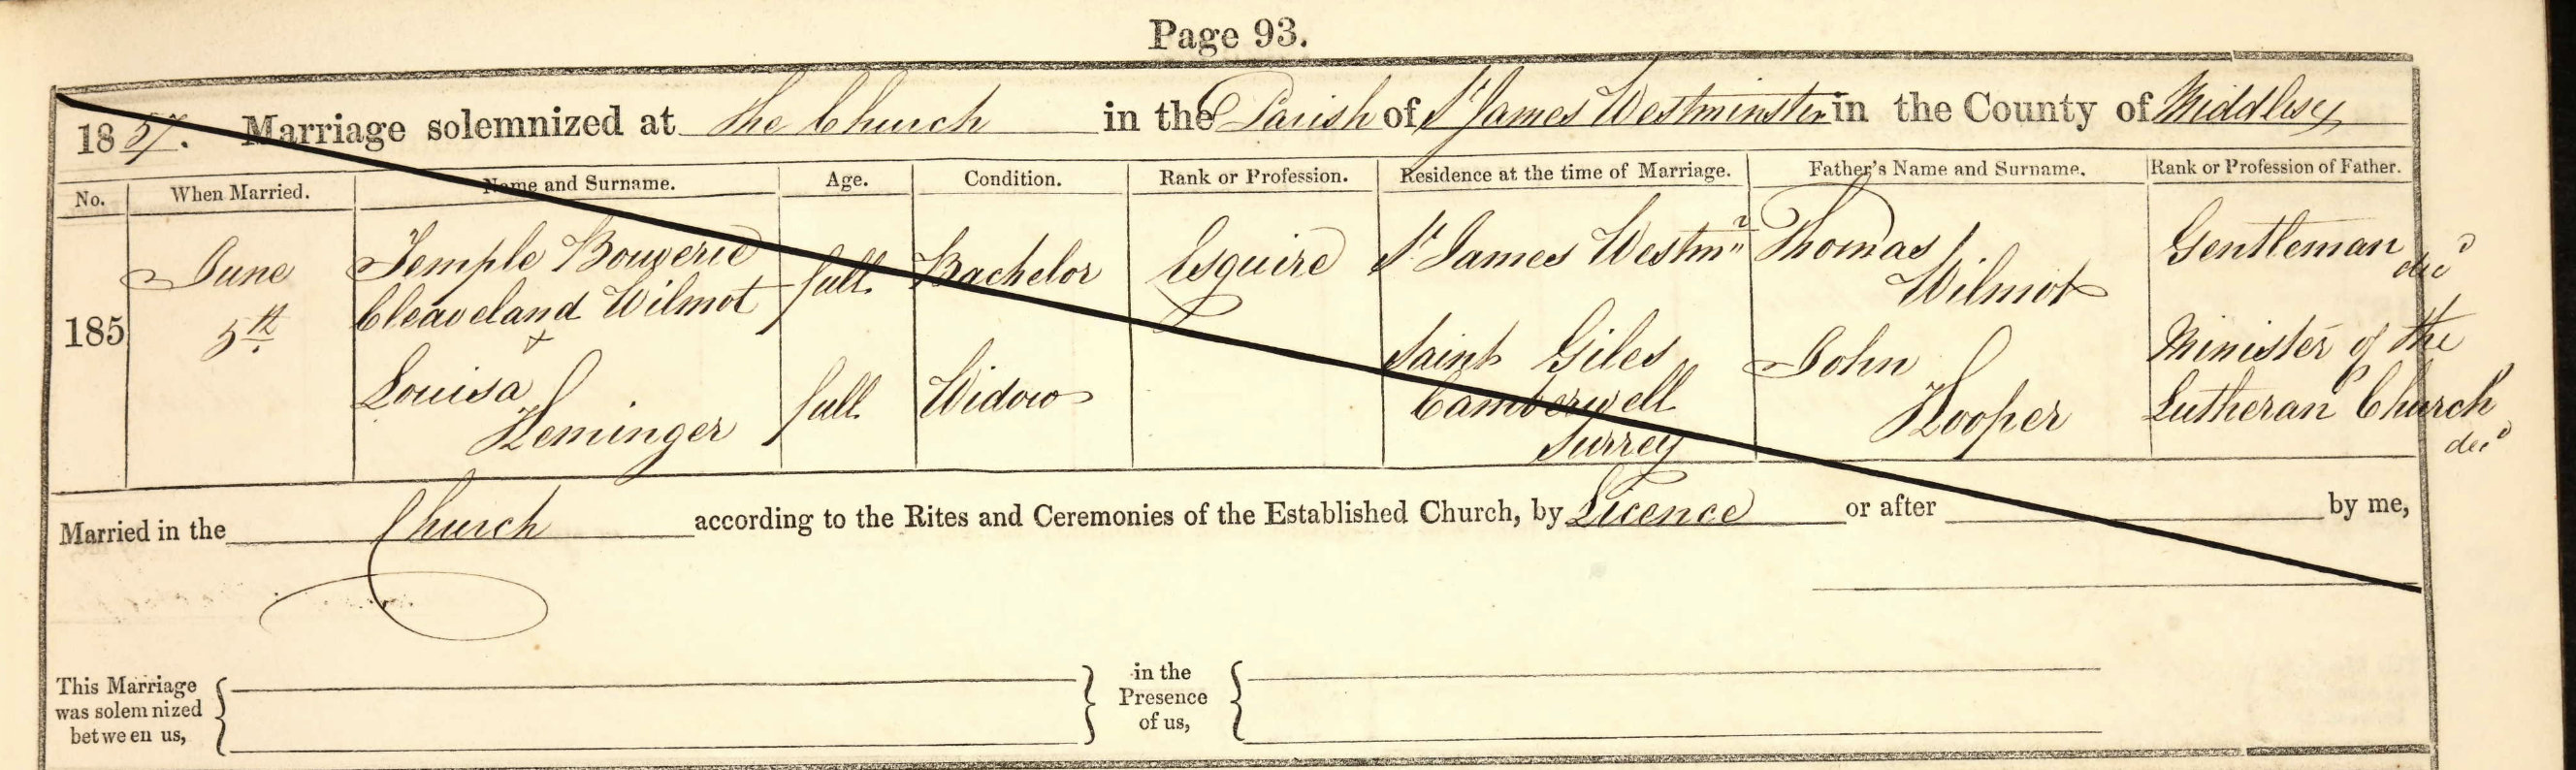 Page 93.
1857. Marriage solemnized at the Church in the Parish of St James Westminster in the County of Middlesex
No. When Married. Name and Surname. Age. Condition. Rank or Profession. Residence at the time of Marriage. Father's Name and Surname. Rank or Profession of Father.
185 June 5th Temple Bouverie Cleaveland Wilmot full Bachelor Esquire St James Westmr Thomas Wilmot Gentleman decd
+
Louisa Heminger full Widow Saint Giles Camberwell Surrey John Hooper Minister of the Lutheran Church decd
Married in the Church according to the Rites and Ceremonies of the Established Church, by Licence or after by me,
This Marriage was solemnized between us,
in the Presence of us,